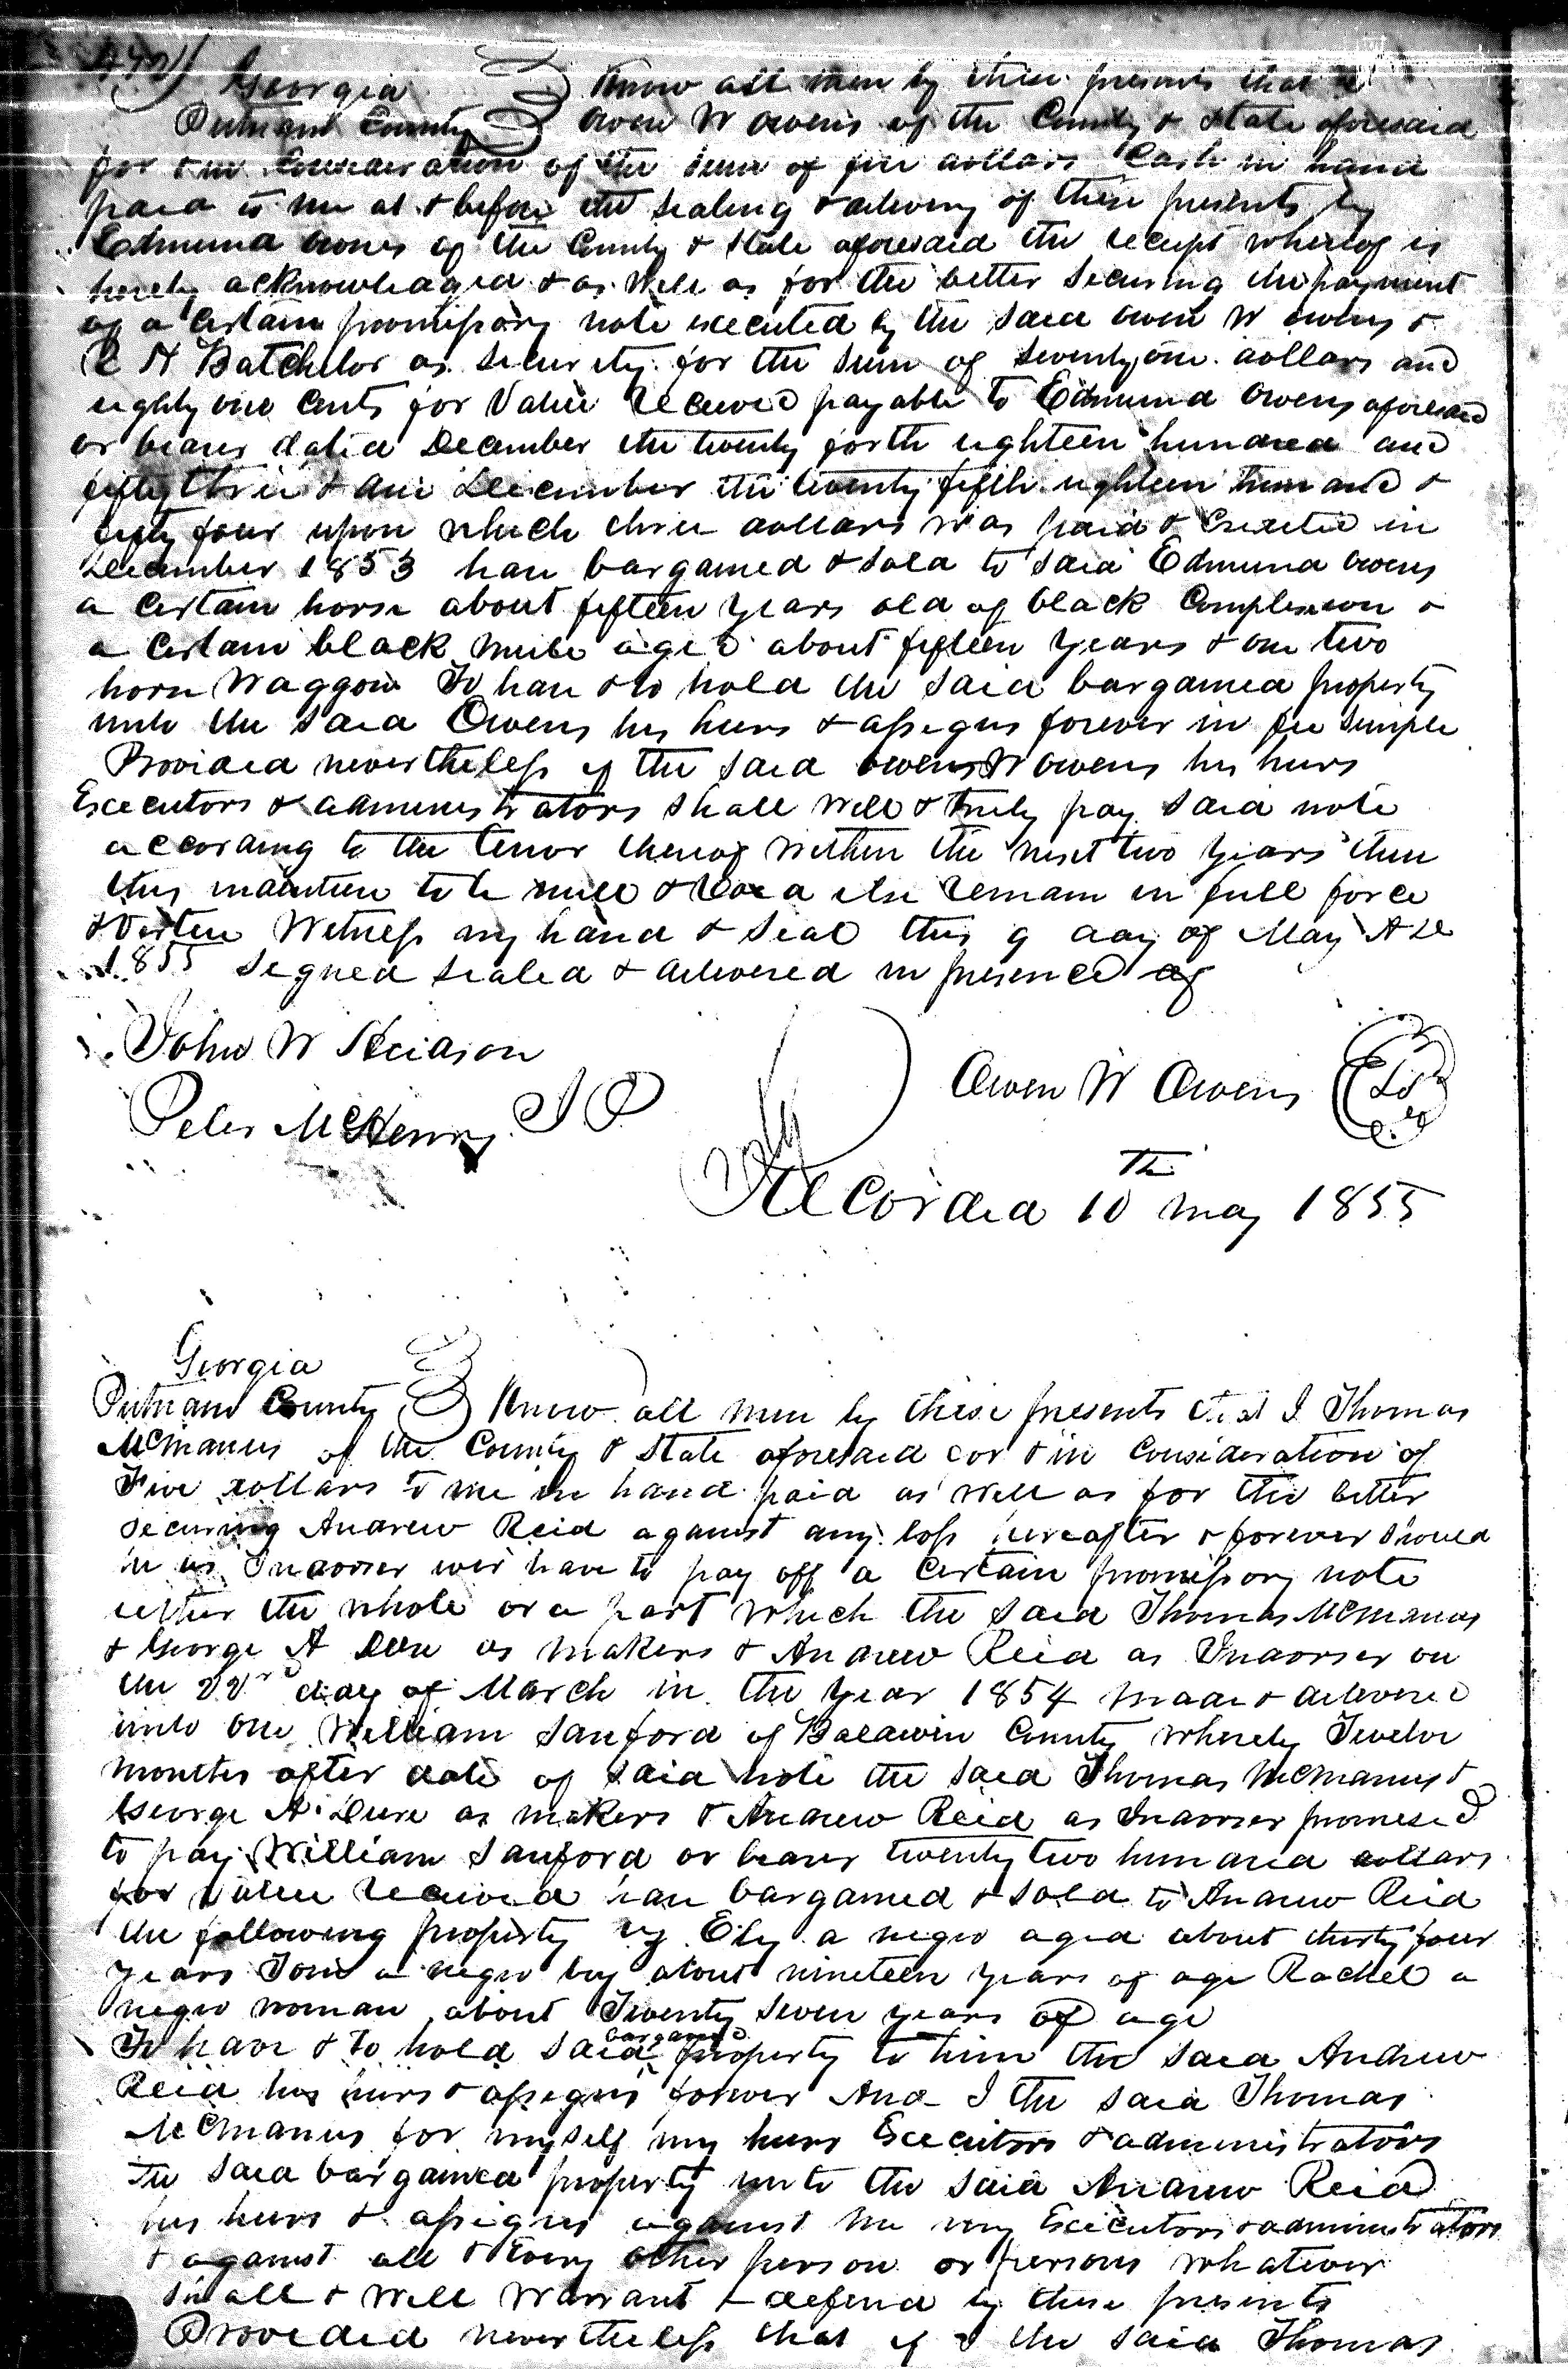 Georgia Know all men by these presents that I
Putnam County Owen W Owens of the County & State aforesaid
for & in Consideration of the sum of five dollars Cash in hand
paid to me at & before the sealing & delivery of these presents by
Edmund Owens of the County & State aforesaid the receipt whereof is
hereby acknowledged & as well as for the better securing the payment
of a certain promissory note executed by the said Owen W Owens &
N Batchelor as security for the sum of seventy one dollars and
eighty one cents for Value Received payable to Edmund Owens aforesaid
or bearer dated December the twenty forth eighteen hundred and
fifty three & due December the twenty fifth eighteen hundred &
fifty four upon which three dollars was paid & credited in
December 1853 have bargained & sold to said Edmund Owens
a certain horse about fifteen years old of black Complexion &
a certain black mule aged about fifteen years & one two
horse Waggon To have & to hold the said bargained property
unto the said Owens his heirs & assigns forever in fee simple
Provided nevertheless if the said Owens W Owens his heirs
Executors & administrators shall well & truly pay said note
according to the tenor thereof within the next two years then
this to be null & void else remain in full force
& Virtue Witness my hand & seal this 9 day of May A D
1855 Signed sealed & delivered in presence of
John W
Peter McHenry J P
Owen W Owens LS
Recorded 10th May 1855
Georgia
Putnam County Know all men by these presents that I Thomas
McManus of the County & State aforesaid for & in Consideration of
Five dollars to me in hand paid as well as for the better
securing Andrew Reid against any loss hereafter & forever should
he as Indorser ever have to pay off a certain promissory note
either the whole or a part which the said Thomas McManus
& George A as makers & Andrew Reid as Indorser on
the 22nd day of March in the year 1854 made & delivered
unto one William Sanford of Baldwin County whereby Twelve
months after date of said note the said Thomas McManus &
George A as makers & Andrew Reid as Indorser promised
to pay William Sanford or bearer twenty two hundred dollars
for value received have bargained & sold to Andrew Reid
the following property viz Ely a negro aged about thirty four
years Tom a negro boy about nineteen years of age Rachel a
negro woman about Twenty seven years of age
To have & to hold said bargained property to him the said Andrew
Reid his heirs & assigns forever And I the said Thomas
McManus for myself my heirs Executors & administrators
the said bargained property unto the said Andrew Reid
his heirs & assigns against me my Executors & administrators
& against all & every other person or persons whatever
shall & will warrant & defend by these presents
Provided nevertheless that if I the said Thomas